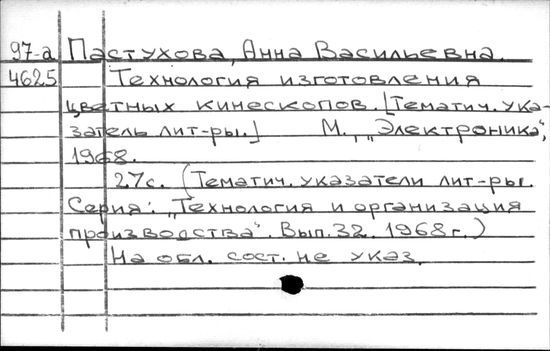 97-а Пастухова, Анна Васильевна.
4625 Технология изготовления
цветных кинескопов. [Тематич. ука-
затель лит-ры.] М., „Электроника",
1968.
27с. (Тематич. указатели лит-ры.
Серия: „Технология и организация
производства". Вып. 32. 1968г.)
На обл. сост. не указ.